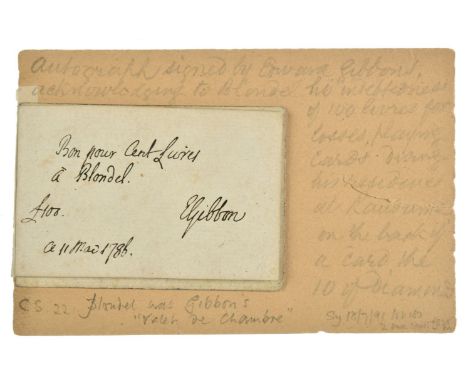 Autograph signed by Edward Gibbons,
acknowledging to Blondel his indebtedness
of 100 livres for
losses, playing
cards during
his residence
at Lausanne
on the back of
a card the
10 of Diamonds
Bon pour Cent Livres
à Blondel.
£100. EGibbon
Ce 11 Mai 1786.
C S 22 Blondel was Gibbon's
"Valet de Chambre"
Sy 18/7/91